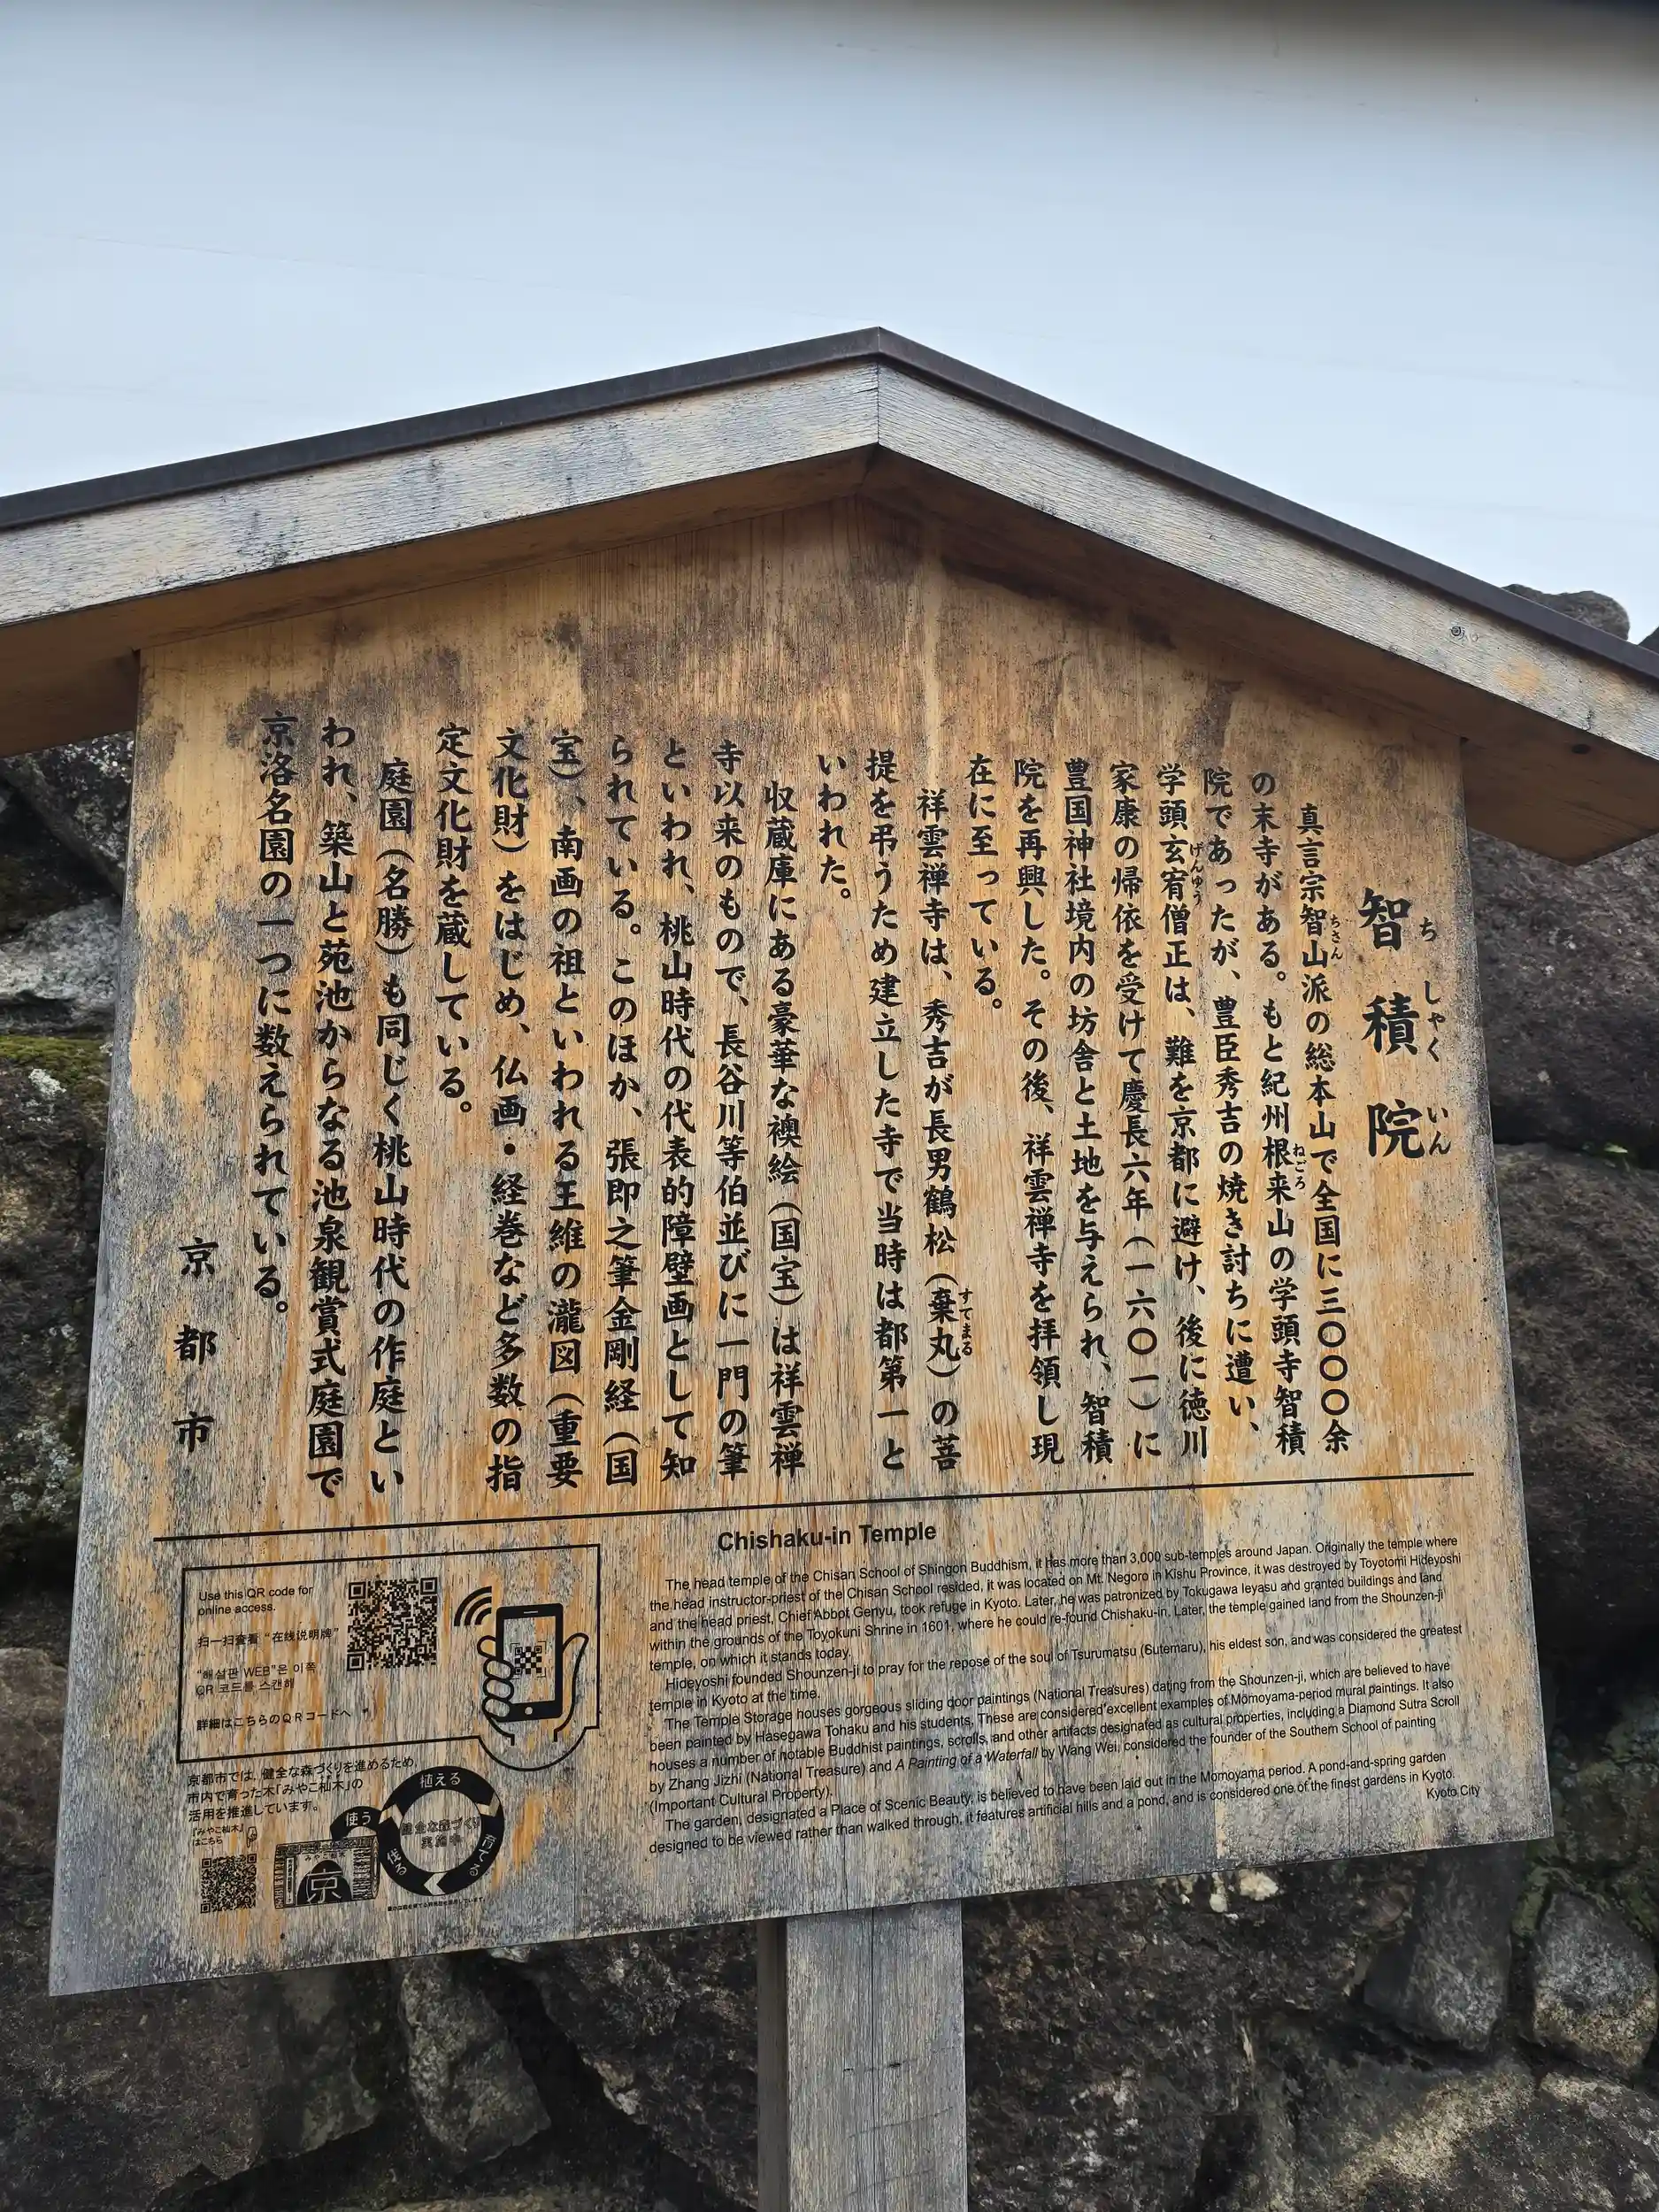 智積院
ちしゃくいん
真言宗智山派の総本山で全国に三〇〇〇余
ちさん
の末寺がある。もと紀州根来山の学頭寺智積
ねごろ
院であったが、豊臣秀吉の焼き討ちに遭い、
学頭玄宥僧正は、難を京都に避け、後に徳川
げんゆう
家康の帰依を受けて慶長六年（一六〇一）に
豊国神社境内の坊舎と土地を与えられ、智積
院を再興した。その後、祥雲禅寺を拝領し現
在に至っている。
祥雲禅寺は、秀吉が長男鶴松（棄丸）の菩
すてまる
提を弔うため建立した寺で当時は都第一と
いわれた。
収蔵庫にある豪華な襖絵（国宝）は祥雲禅
寺以来のもので、長谷川等伯並びに一門の筆
といわれ、桃山時代の代表的障壁画として知
られている。このほか、張即之筆金剛経（国
宝）、南画の祖といわれる王維の瀧図（重要
文化財）をはじめ、仏画・経巻など多数の指
定文化財を蔵している。
庭園（名勝）も同じく桃山時代の作庭とい
われ、築山と苑池からなる池泉観賞式庭園で
京洛名園の一つに数えられている。
京都市
Chishaku-in Temple
The head temple of the Chisan School of Shingon Buddhism, it has more than 3,000 sub-temples around Japan. Originally the temple where
the head instructor-priest of the Chisan School resided, it was located on Mt. Negoro in Kishu Province, it was destroyed by Toyotomi Hideyoshi
and the head priest, Chief Abbot Genyu, took refuge in Kyoto. Later, he was patronized by Tokugawa Ieyasu and granted buildings and land
within the grounds of the Toyokuni Shrine in 1601, where he could re-found Chishaku-in. Later, the temple gained land from the Shounzen-ji
temple, on which it stands today.
Hideyoshi founded Shounzen-ji to pray for the repose of the soul of Tsurumatsu (Sutemaru), his eldest son, and was considered the greatest
temple in Kyoto at the time.
The Temple Storage houses gorgeous sliding door paintings (National Treasures) dating from the Shounzen-ji, which are believed to have
been painted by Hasegawa Tohaku and his students. These are considered excellent examples of Momoyama-period mural paintings. It also
houses a number of notable Buddhist paintings, scrolls, and other artifacts designated as cultural properties, including a Diamond Sutra Scroll
by Zhang Jizhi (National Treasure) and A Painting of a Waterfall by Wang Wei, considered the founder of the Southern School of painting
(Important Cultural Property).
The garden, designated a Place of Scenic Beauty, is believed to have been laid out in the Momoyama period. A pond-and-spring garden
designed to be viewed rather than walked through, it features artificial hills and a pond, and is considered one of the finest gardens in Kyoto.
Kyoto City
Use this QR code for
online access.
扫一扫查看“在线说明牌”
"해설판 WEB"은 이쪽
QR 코드를 스캔해
詳細はこちらのQRコードへ
京都市では、健全な森づくりを進めるため、
市内で育った木「みやこ杣木」の
活用を推進しています。
「みやこ杣木」
はこちら
植える
育てる
伐る
使う
健全な森づくり
実施中
みやこ杣木
京